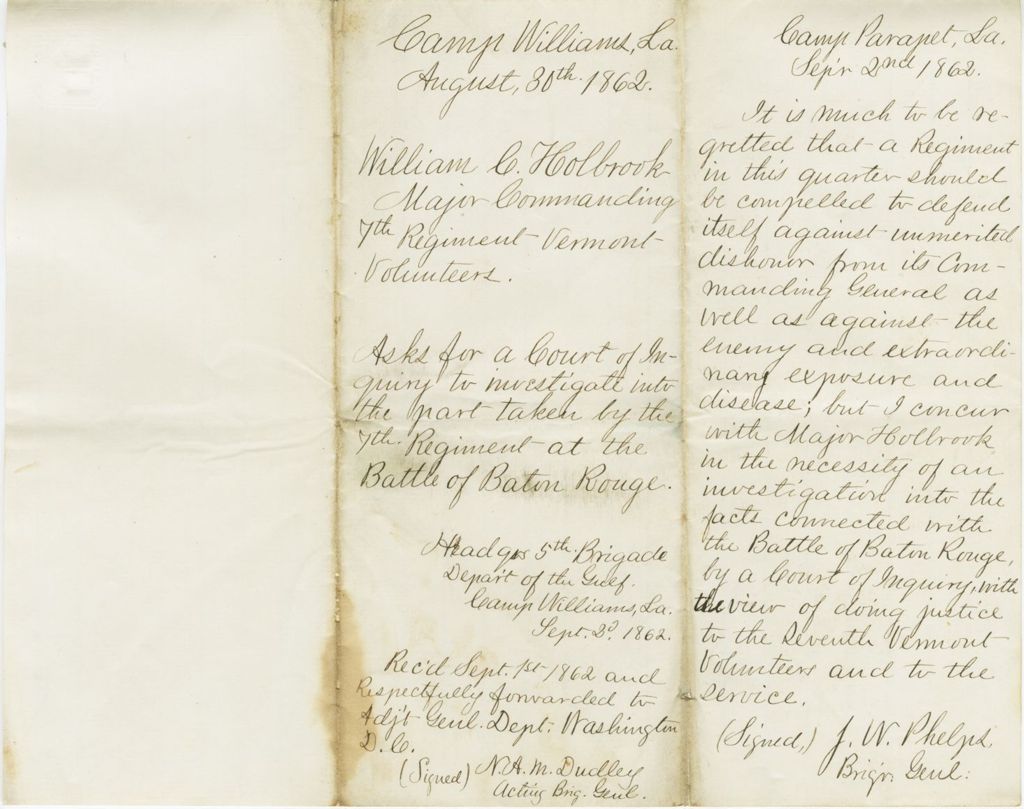 Camp Williams, La.
August, 30th. 1862.
William C. Holbrook
Major Commanding
7th Regiment Vermont
Volunteers.
Asks for a Court of In-
quiry to investigate into
the part taken by the
7th. Regiment at the
Battle of Baton Rouge.
Headqrs 5th Brigade
Depart of the Gulf.
Camp Williams, La.
Sept. 2d. 1862.
Rec'd Sept. 1st 1862 and
Respectfully forwarded to
Adj't Genl. Dept. Washington
D.C.
(Signed) N.A.M. Dudley
Acting Brig. Genl.
Camp Parapet, La.
Sep'r 2nd, 1862.
It is much to be re-
gretted that a Regiment
in this quarter should
be compelled to defend
itself against unmerited
dishonor from its Com-
manding General as
well as against the
enemy and extraordi-
nary exposure and
disease; but I concur
with Major Holbrook
in the necessity of an
investigation into the
facts connected with
the Battle of Baton Rouge,
by a Court of Inquiry, with
the view of doing justice
to the Seventh Vermont
Volunteers and to the
service.
(Signed,) J. W. Phelps,
Brig'r. Genl: